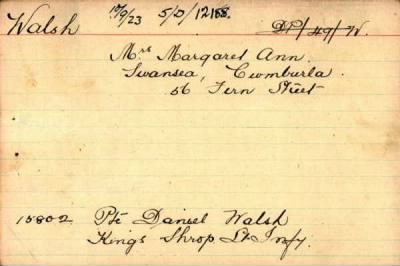 Walsh 17/9/23 5/0/12188. DP/49/W.
Mrs Margaret Ann.
Swansea, Cwmburla.
56 Fern Street
15802 Pte Daniel Walsh
Kings Shrop Lt Infy.